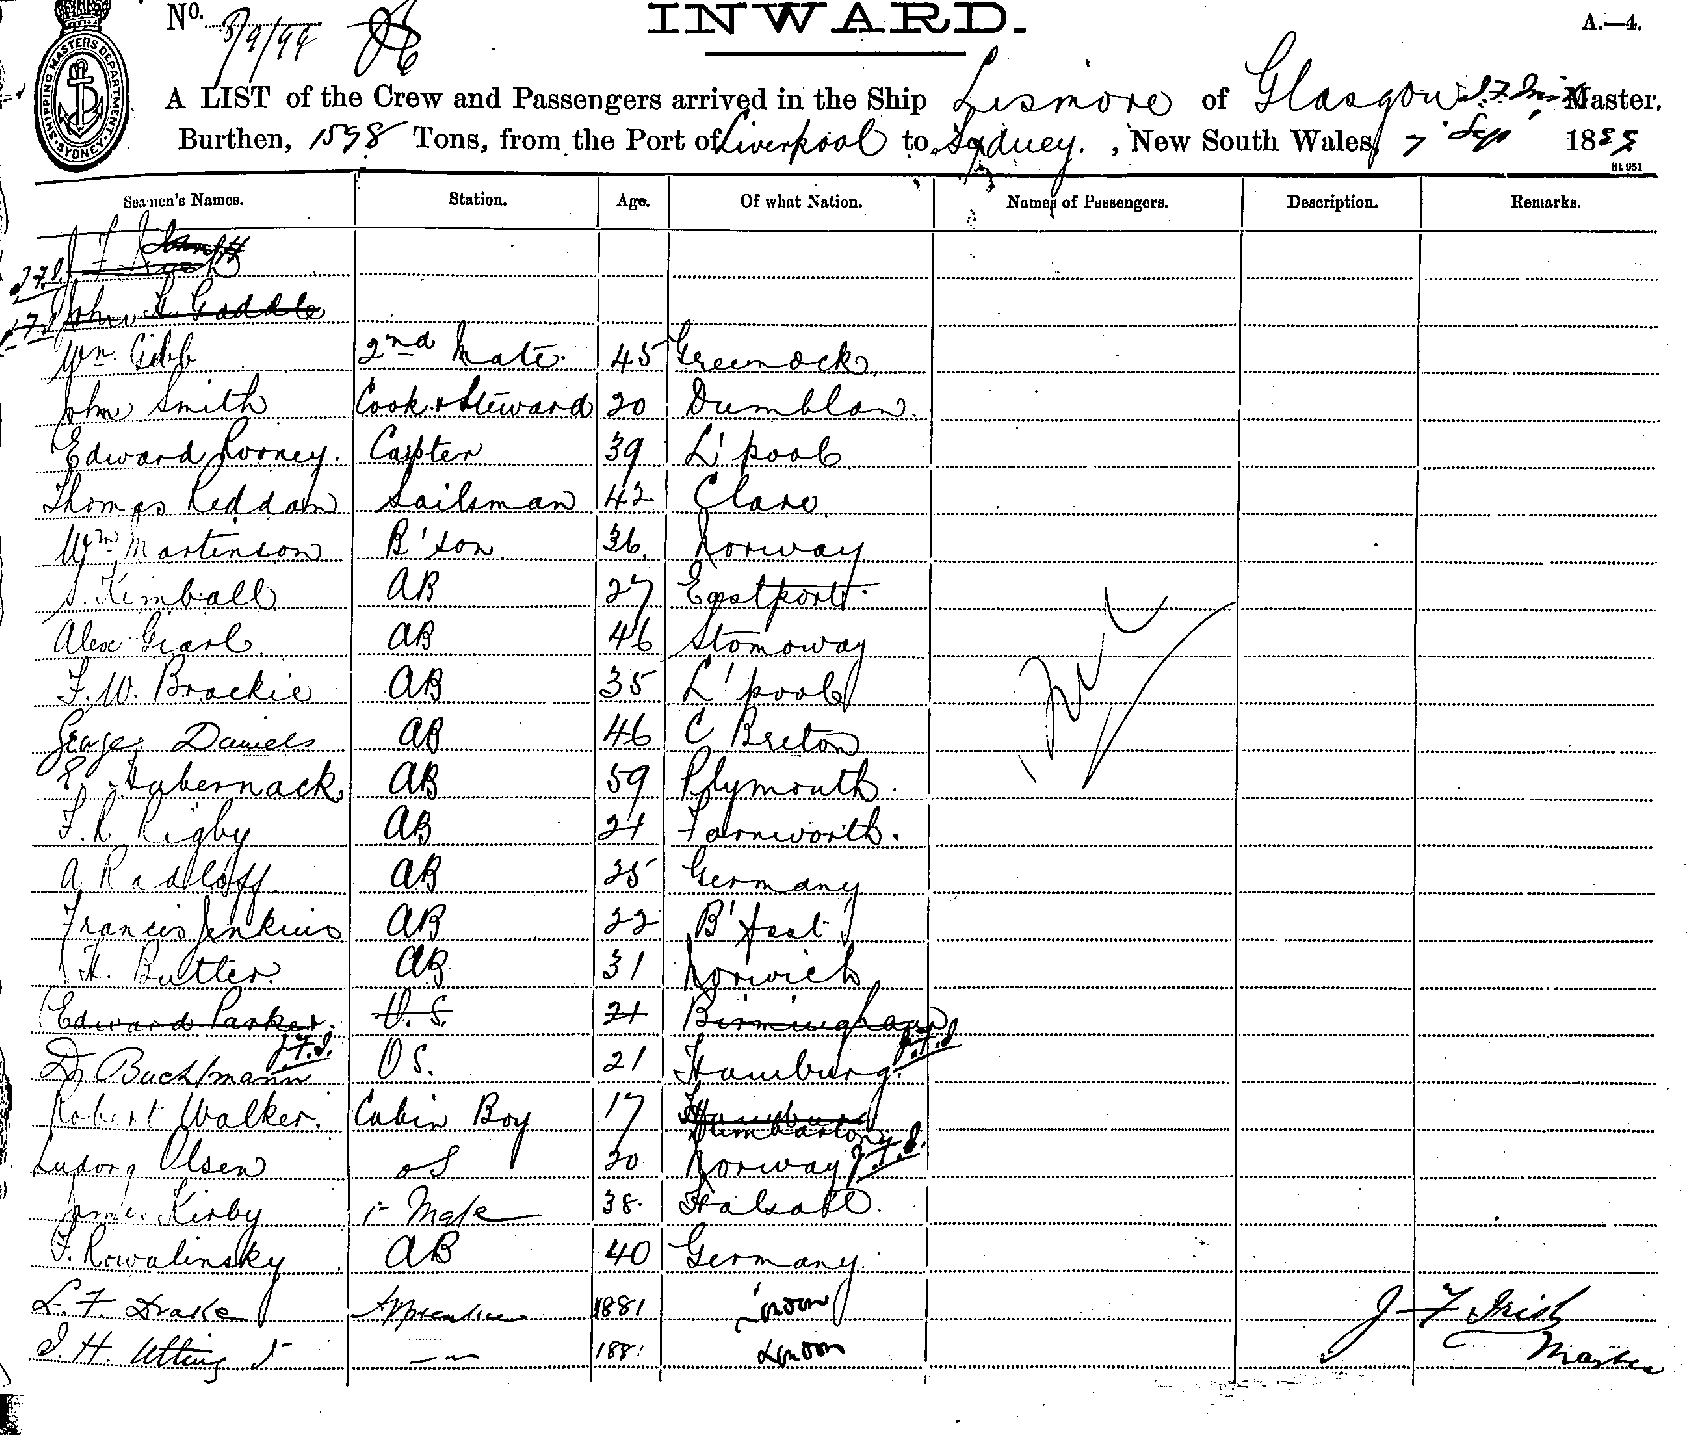 No. 8/9/99
INWARD.
A.—4.
SHIPPING MASTERS DEPARTMENT SYDNEY
A LIST of the Crew and Passengers arrived in the Ship Lismore of Glasgow J. F. Irish Master.
Burthen, 1598 Tons, from the Port of Liverpool to Sydney. , New South Wales, 7 Sept 18
Seamen's Names. Station. Age. Of what Nation. Names of Passengers. Description. Remarks.
J F
John Gaddle
Wm. Gibb 2nd Mate. 45 Greenock.
John Smith Cook & Steward 20 Dumblan.
Edward Rorney. Carpter 39 L'pool
Thomas Reddan Sailsman 42 Clare.
Wm Martinson B'son 36. Norway
S. Kimball AB 27 Eastport.
Alex Grarl AB 46 Stornoway
F. W. Brockie AB 35 L'pool
George Daniels AB 46 C Breton
E Habernack AB 59 Plymouth.
F. R Rigby AB 21 Farnworth.
A Radloff AB 25 Germany
Francis Jenkins AB 22 B'fast
H. Butler. AB 31 Norwich
Edward Parker. O. S. 21 Birmingham
J.F.I. J.F.I
Buchmann OS. 21 Hamburg.
Robert Walker. Cabin Boy 17 Dumbarton
Olsen OS 20 Norway J.F.I.
James Kirby 1st Mate 38. Halsall.
F. Kowalinsky AB 40 Germany.
L. F. Drake Apprentice 1881 London J F Irish
J. H. Utting 188 London Master